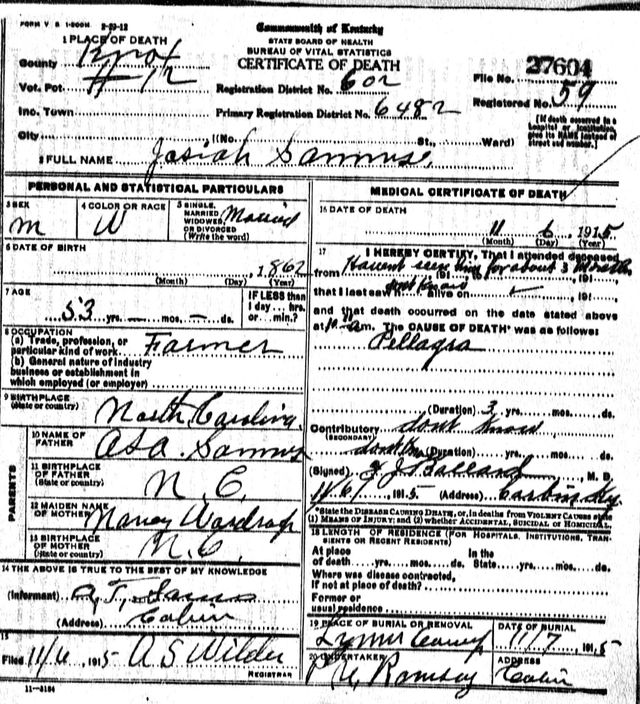 FORM V S 1-500M 2-29-12
Commonwealth of Kentucky
STATE BOARD OF HEALTH
BUREAU OF VITAL STATISTICS
CERTIFICATE OF DEATH
1 PLACE OF DEATH
County Knox
Vot. Pct # 12
Registration District No. 602
File No. 27604
Inc. Town
Primary Registration District No. 6482
Registered No. 59
City (No. St., Ward)
[If death occurred in a hospital or institution, give its NAME instead of street and number.]
2 FULL NAME Josiah Sammus
PERSONAL AND STATISTICAL PARTICULARS
3 SEX M
4 COLOR OR RACE W
5 SINGLE, MARRIED, WIDOWED OR DIVORCED (Write the word) Married
6 DATE OF BIRTH
1862
(Month) (Day) (Year)
7 AGE
53 yrs. — mos. — ds.
IF LESS than 1 day....hrs. or....min.?
8 OCCUPATION
(a) Trade, profession, or particular kind of work Farmer
(b) General nature of industry business or establishment in which employed (or employer)
9 BIRTHPLACE
(State or country) North Carolina
PARENTS
10 NAME OF FATHER Asa Sammus
11 BIRTHPLACE OF FATHER (State or country) N. C.
12 MAIDEN NAME OF MOTHER Nancy Wardrap
13 BIRTHPLACE OF MOTHER (State or country) N. C.
14 THE ABOVE IS TRUE TO THE BEST OF MY KNOWLEDGE
(Informant)
(Address)
15
Filed 11/6 1915 A S Wilder
REGISTRAR
11—3184
MEDICAL CERTIFICATE OF DEATH
16 DATE OF DEATH
11 6 1915
(Month) (Day) (Year)
17 I HEREBY CERTIFY, That I attended deceased
from Havent seen him for about 3 Months 191
that I last saw h alive on dont know 191
and that death occurred on the date stated above
at 10 am. The CAUSE OF DEATH* was as follows:
Pellagra
(Duration) 3 yrs. mos. ds.
Contributory dont know
(SECONDARY)
(Duration) yrs. mos. ds.
(Signed) Ballard, M. D.
11/6/ 1915 (Address) Corbin Ky.
*State the DISEASE CAUSING DEATH, or, in deaths from VIOLENT CAUSES state (1) MEANS OF INJURY; and (2) whether ACCIDENTAL, SUICIDAL or HOMICIDAL.
18 LENGTH OF RESIDENCE (FOR HOSPITALS, INSTITUTIONS, TRANSIENTS OR RECENT RESIDENTS)
At place of death....yrs....mos....ds. In the State....yrs....mos....ds.
Where was disease contracted,
If not at place of death?
Former or
usual residence
19 PLACE OF BURIAL OR REMOVAL
Lynn Camp
DATE OF BURIAL
11/7 1915
20 UNDERTAKER
Ramsay
ADDRESS